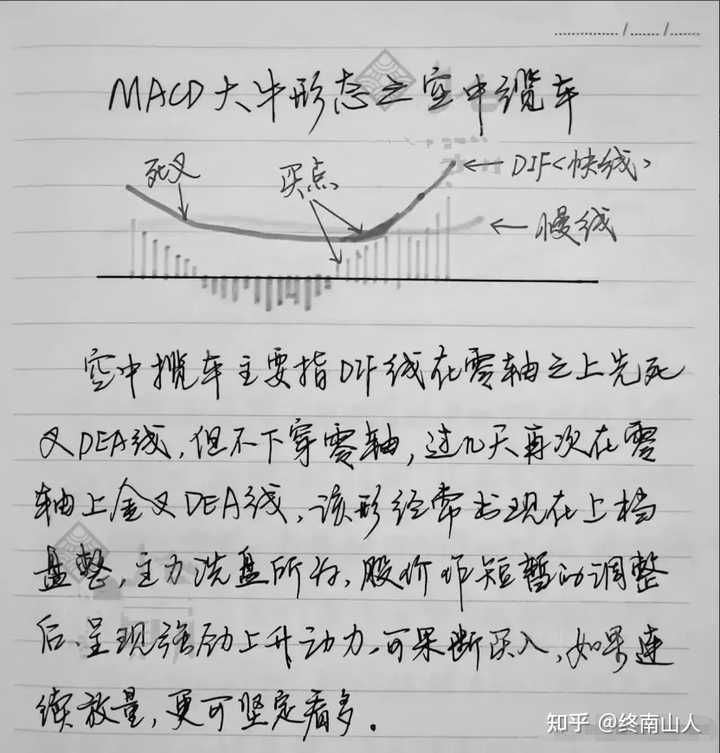 MACD大牛形态之空中缆车
死叉
买点
DIF<快线>
慢线
空中揽车主要指DIF线在零轴之上先死
叉DEA线，但不下穿零轴，过几天再次在零
轴上金叉DEA线，该形经常出现在上档
盘整，主力洗盘所为，股价作短暂的调整
后、呈现强劲上升动力，可果断买入，如果连
续放量，更可坚定看多。
知乎 @终南山人